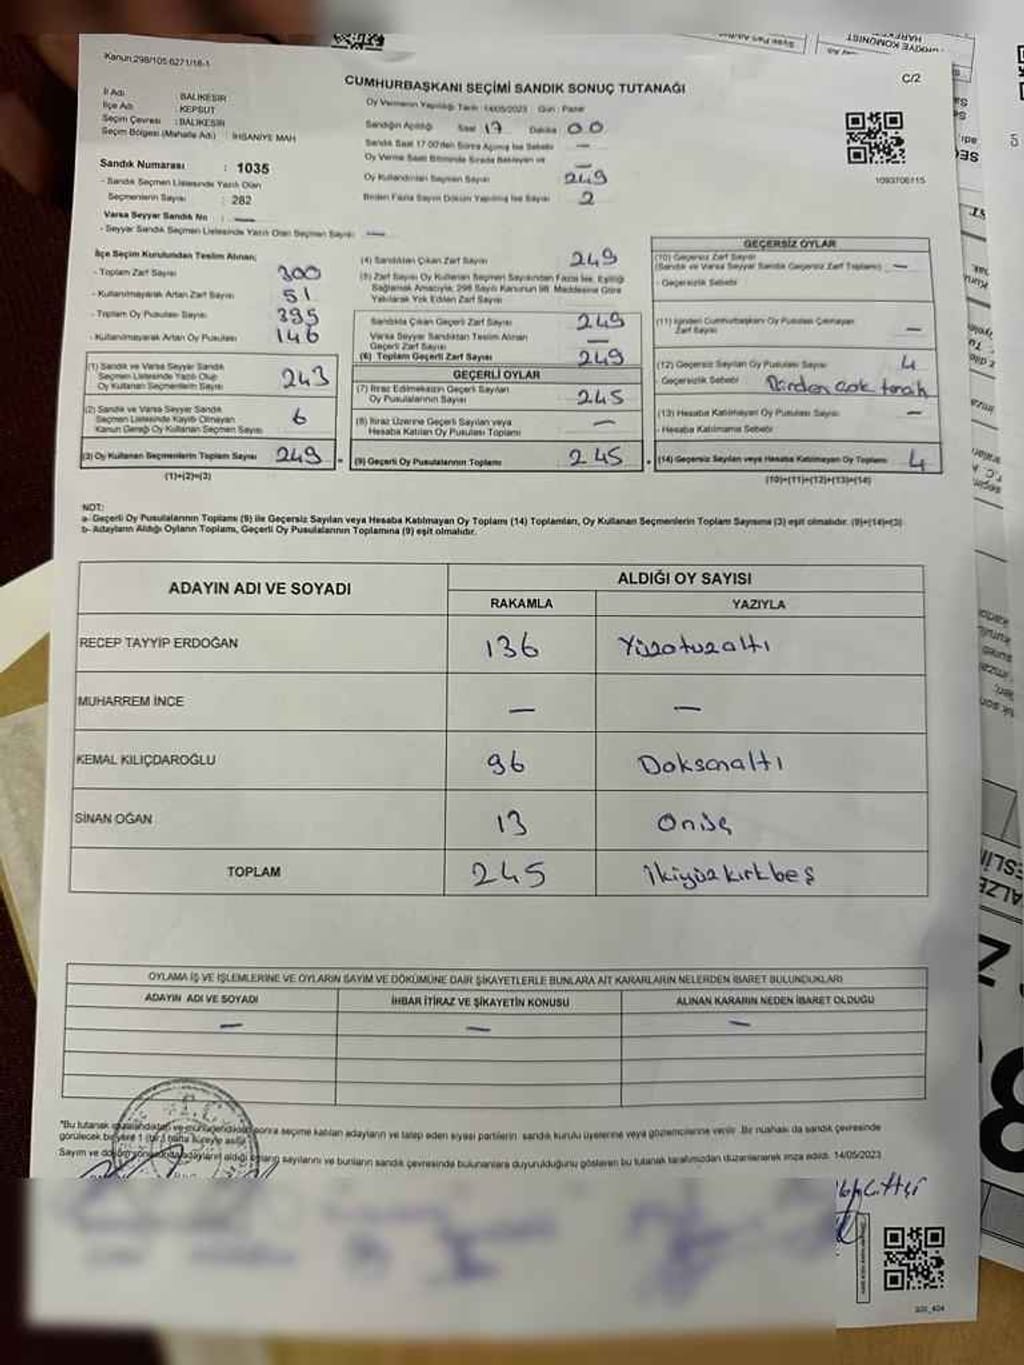 Kanun:298/105 6271/18-1
CUMHURBAŞKANI SEÇİMİ SANDIK SONUÇ TUTANAĞI
C/2
İl Adı : BALIKESİR
İlçe Adı : KEPSUT
Seçim Çevresi : BALIKESİR
Seçim Bölgesi (Mahalle Adı) : İHSANİYE MAH
Sandık Numarası : 1035
- Sandık Seçmen Listesinde Yazılı Olan
Seçmenlerin Sayısı : 282
Varsa Seyyar Sandık No : —
- Seyyar Sandık Seçmen Listesinde Yazılı Olan Seçmen Sayısı : —
Oy Vermenin Yapıldığı Tarih : 14/05/2023 Gün : Pazar
Sandığın Açıldığı Saat 17 Dakika 00
Sandık Saat 17:00'den Sonra Açılmış İse Sebebi —
Oy Verme Saati Bitiminde Sırada Bekleyen —
Oy Kullandırılan Seçmen Sayısı 249
Birden Fazla Sayım Döküm Yapılmış İse Sayısı 2
1093706115
İlçe Seçim Kurulundan Teslim Alınan;
- Toplam Zarf Sayısı 300
- Kullanılmayarak Artan Zarf Sayısı 51
- Toplam Oy Pusulası Sayısı 395
- Kullanılmayarak Artan Oy Pusulası 146
(1) Sandık ve Varsa Seyyar Sandık
Seçmen Listesinde Yazılı Olup
Oy Kullanan Seçmenlerin Sayısı 243
(2) Sandık ve Varsa Seyyar Sandık
Seçmen Listesinde Kayıtlı Olmayan
Kanun Gereği Oy Kullanan Seçmen Sayısı 6
(3) Oy Kullanan Seçmenlerin Toplam Sayısı 249
(1)+(2)=(3)
(4) Sandıktan Çıkan Zarf Sayısı 249
(5) Zarf Sayısı Oy Kullanan Seçmen Sayısından Fazla İse, Eşitliği
Sağlamak Amacıyla; 298 Sayılı Kanunun 98. Maddesine Göre
Yakılarak Yok Edilen Zarf Sayısı
Sandıkta Çıkan Geçerli Zarf Sayısı 249
Varsa Seyyar Sandıktan Teslim Alınan
Geçerli Zarf Sayısı —
(6) Toplam Geçerli Zarf Sayısı 249
GEÇERLİ OYLAR
(7) İtiraz Edilmeksizin Geçerli Sayılan
Oy Pusulalarının Sayısı 245
(8) İtiraz Üzerine Geçerli Sayılan veya
Hesaba Katılan Oy Pusulası Toplamı —
(9) Geçerli Oy Pusulalarının Toplamı 245
GEÇERSİZ OYLAR
(10) Geçersiz Zarf Sayısı
(Sandık ve Varsa Seyyar Sandık Geçersiz Zarf Toplamı) —
- Geçersizlik Sebebi
(11) İçinden Cumhurbaşkanı Oy Pusulası Çıkmayan
Zarf Sayısı —
(12) Geçersiz Sayılan Oy Pusulası Sayısı 4
- Geçersizlik Sebebi Birden çok tercih
(13) Hesaba Katılmayan Oy Pusulası Sayısı —
- Hesaba Katılmama Sebebi
(14) Geçersiz Sayılan veya Hesaba Katılmayan Oy Toplamı 4
(10)+(11)+(12)+(13)=(14)
NOT:
a- Geçerli Oy Pusulalarının Toplamı (9) ile Geçersiz Sayılan veya Hesaba Katılmayan Oy Toplamı (14) Toplamları, Oy Kullanan Seçmenlerin Toplam Sayısına (3) eşit olmalıdır. (9)+(14)=(3)
b- Adayların Aldığı Oyların Toplamı, Geçerli Oy Pusulalarının Toplamına (9) eşit olmalıdır.
ADAYIN ADI VE SOYADI
ALDIĞI OY SAYISI
RAKAMLA YAZIYLA
RECEP TAYYİP ERDOĞAN 136 Yüzotuzaltı
MUHARREM İNCE — —
KEMAL KILIÇDAROĞLU 96 Doksanaltı
SİNAN OĞAN 13 Onüç
TOPLAM 245 İkiyüzkırkbeş
OYLAMA İŞ VE İŞLEMLERİNE VE OYLARIN SAYIM VE DÖKÜMÜNE DAİR ŞİKAYETLERLE BUNLARA AİT KARARLARIN NELERDEN İBARET BULUNDUKLARI
ADAYIN ADI VE SOYADI İHBAR İTİRAZ VE ŞİKAYETİN KONUSU ALINAN KARARIN NEDEN İBARET OLDUĞU
— — —
"Bu tutanak imzalandıktan ve mühürlendikten sonra seçime katılan adayların ve talep eden siyasi partilerin sandık kurulu üyelerine veya gözlemcilerine verilir. Bir nüshası da sandık çevresinde
görülecek bir yere 1 (bir) hafta süreyle asılır.
Sayım ve döküm sonucunda adayların aldığı oyların sayılarını ve bunların sandık çevresinde bulunanlara duyurulduğunu gösteren bu tutanak tarafımızdan düzenlenerek imza edildi. 14/05/2023